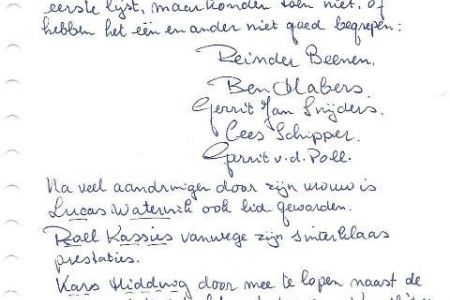 eerste lijst, maar konden toen niet, of
hebben het één en ander niet goed begrepen:
Reinder Beenen.
Ben Mabers.
Gerrit Jan Snijders.
Cees Schipper.
Gerrit v.d. Poll.
Na veel aandringen door zijn vrouw is
Lucas Waterink ook lid geworden.
Roel Kassies vanwege zijn sinterklaas
prestaties.
Kars Hidding door mee te lopen naast de